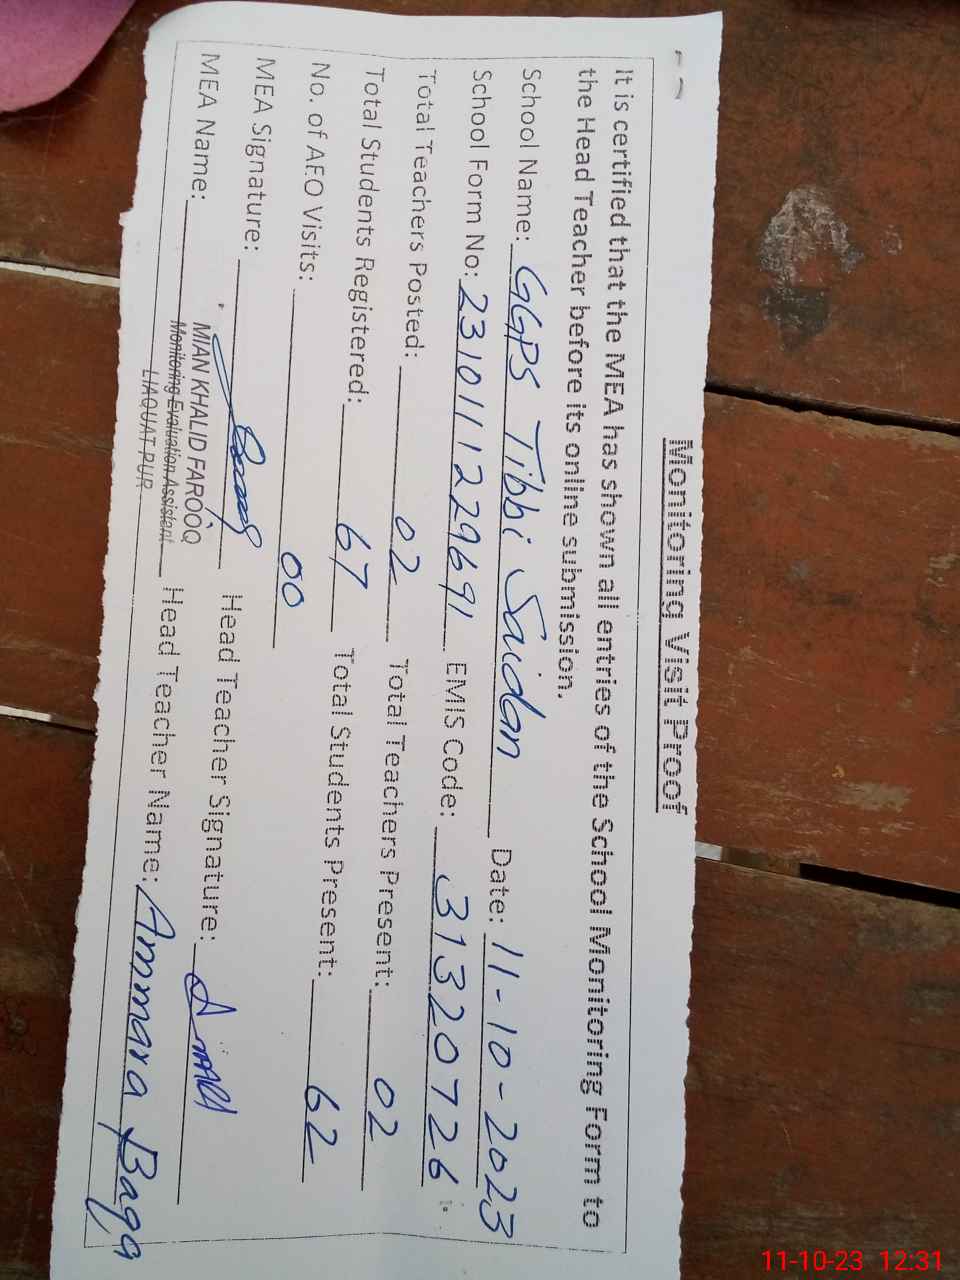 Monitoring Visit Proof
It is certified that the MEA has shown all entries of the School Monitoring Form to
the Head Teacher before its online submission.
School Name: GGPS Tibbi Saidan Date: 11-10-2023
School Form No: 2310111229691 EMIS Code: 31320726
Total Teachers Posted: 02 Total Teachers Present: 02
Total Students Registered: 67 Total Students Present: 62
No. of AEO Visits: 00
MEA Signature: Head Teacher Signature:
MEA Name: MIAN KHALID FAROOQ Head Teacher Name: Ammara Bagga
Monitoring Evaluation Assistent
LIAQUAT PUR
11-10-23 12:31